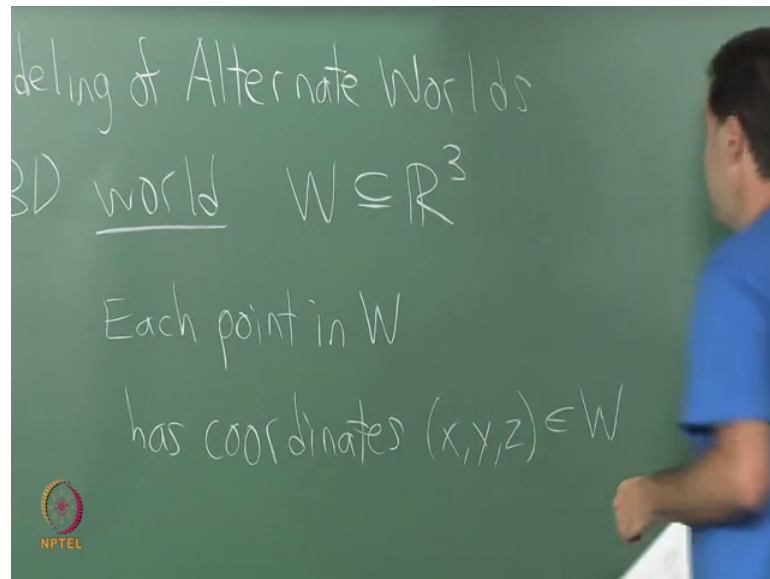 deling of Alternate Worlds
3D world W ⊆ ℝ³
Each point in W
has coordinates (x,y,z) ∈ W
NPTEL